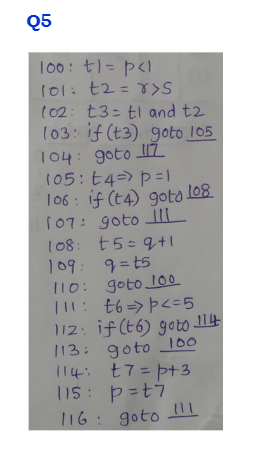 Q5
100: t1 = p<1
101: t2 = r>5
102: t3 = t1 and t2
103: if (t3) goto 105
104: goto 117
105: t4 => p=1
106: if (t4) goto 108
107: goto 111
108: t5 = q+1
109: q = t5
110: goto 100
111: t6 => p<=5
112: if (t6) goto 114
113: goto 100
114: t7 = p+3
115: p = t7
116: goto 111